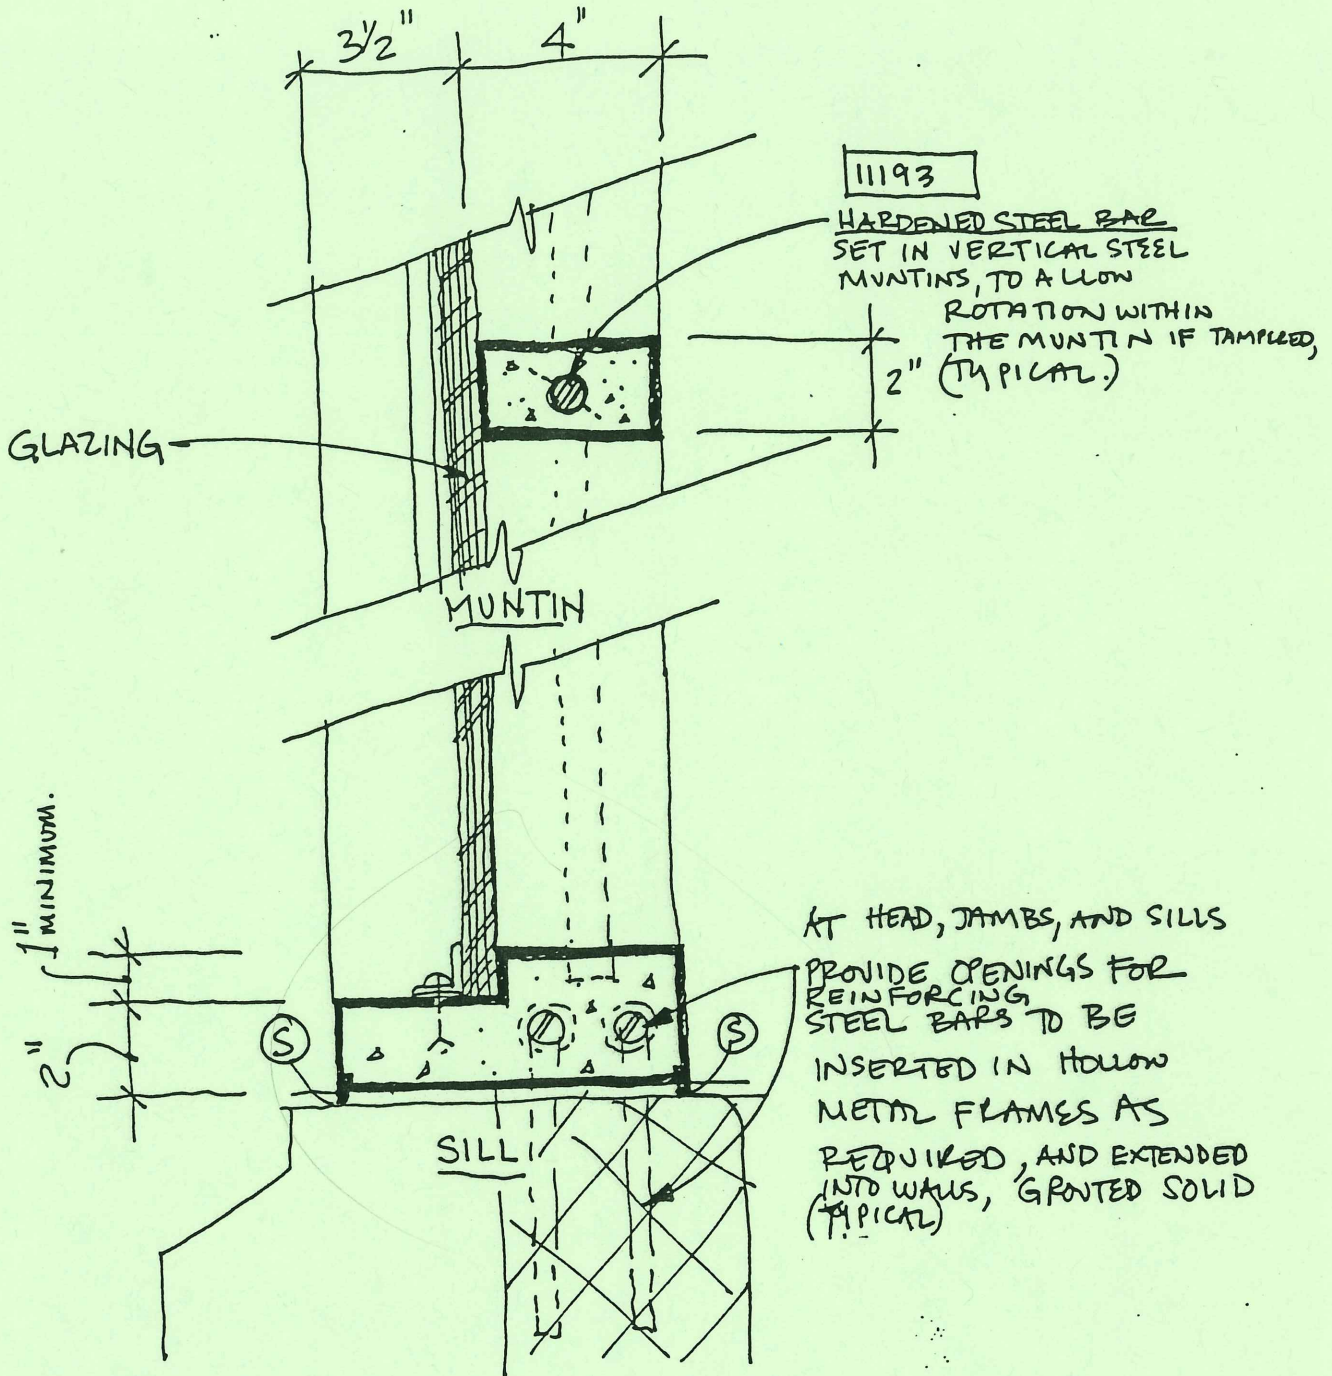 3½"
4"
11193
HARDENED STEEL BAR
SET IN VERTICAL STEEL
MUNTINS, TO ALLOW
ROTATION WITHIN
THE MUNTIN IF TAMPERED,
2"
(TYPICAL.)
GLAZING
MUNTIN
1" MINIMUM.
2"
S
S
AT HEAD, JAMBS, AND SILLS
PROVIDE OPENINGS FOR
REINFORCING
STEEL BARS TO BE
INSERTED IN HOLLOW
METAL FRAMES AS
REQUIRED, AND EXTENDED
INTO WALLS, GROUTED SOLID
(TYPICAL)
SILL